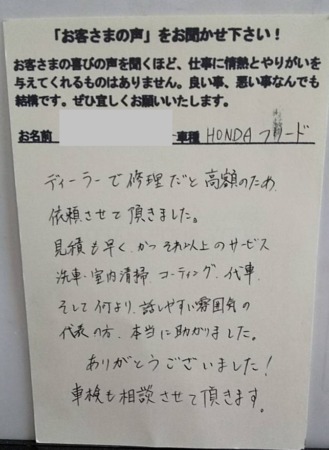 「お客さまの声」をお聞かせ下さい！
お客さまの喜びの声を聞くほど、仕事に情熱とやりがいを
与えてくれるものはありません。良い事、悪い事なんでも
結構です。ぜひ宜しくお願いいたします。
お名前 車種 HONDA フリード
ディーラーで修理だと高額のため
依頼させて頂きました。
見積も早く、かつそれ以上のサービス
洗車・室内清掃、コーティング、代車
そして何より、話しやすい雰囲気の
代表の方、本当に助かりました。
ありがとうございました！
車検も相談させて頂きます。